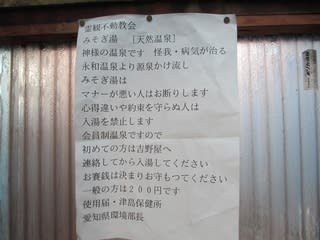 霊観不動教会
みそぎ湯　[天然温泉]
神様の温泉です　怪我・病気が治る
永和温泉より源泉かけ流し
みそぎ湯は
マナーが悪い人はお断りします
心得違いや約束を守らぬ人は
入湯を禁止します
会員制温泉ですので
初めての方は吉野屋へ
連絡してから入湯してください
お賽銭は決まりお守もつてください
一般の方は２００円です
使用届・津島保健所
愛知県環境部長